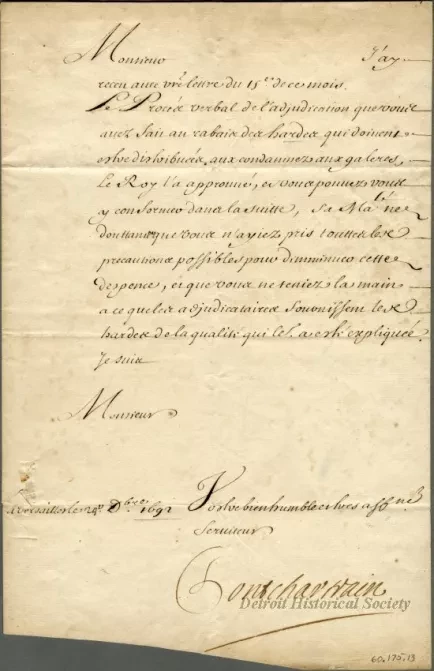 Monsieur J'ay
receu avec vre lettre du 15e de ce mois.
Le Procez verbal de l'adjudication que vous
avez fait au rabais des hardes qui doivent
estre distribuées, aux condamnez aux galeres,
Le Roy l'a approuvé, et vous pouvez vous
y conformer dans la suitte, Sa Maté ne
douttant que vous n'ayiez pris touttes les
precautions possibles pour diminuer cette
despence, et que vous ne teniez la main
a ce que les adjudicataires fournissent les
hardes de la qualité qui a esté expliquée
Je suis
Monsieur
A Versailles le Dbre 1692 Vostre bien humble et tres affné
Serviteur
Pontchartrain
Detroit Historical Society
60.175.13